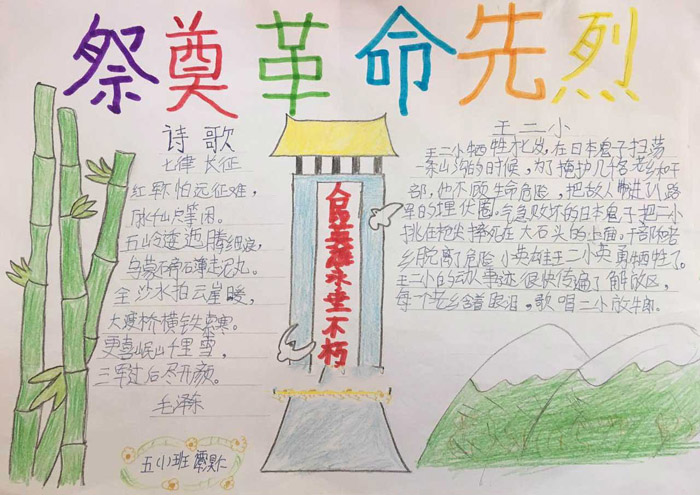 祭奠革命先烈
诗歌
七律 长征
红军不怕远征难，
万水千山只等闲。
五岭逶迤腾细浪，
乌蒙磅礴走泥丸。
金沙水拍云崖暖，
大渡桥横铁索寒。
更喜岷山千里雪，
三军过后尽开颜。
毛泽东
五(1)班
人民英雄永垂不朽
王二小
王二小牺牲, 在日本鬼子扫荡
一条山沟的时候，为了掩护几千名老乡和干
部，他不顾生命危险，把敌人带进八路
军的埋伏圈。气急败坏的日本鬼子把二小
挑在枪尖摔死在大石头的上面。干部和老
乡脱离了危险 小英雄王二小英勇牺牲了。
王二小的事迹很快传遍了解放区，
每个老乡含着眼泪，歌唱二小放牛郎。